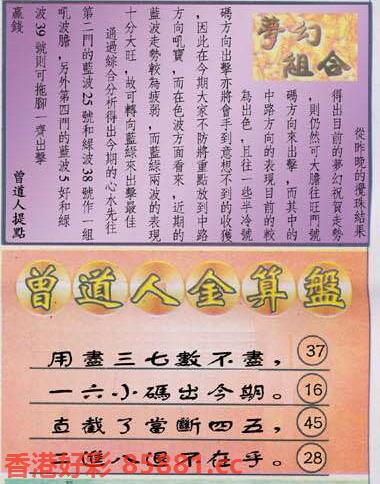 夢幻
組合
從昨晚的攪珠結果
得出目前的夢幻祝賀走勢
，則仍然可大膽往旺門號
碼方向來出擊，而其中的
中路方向的表現目前的較
為出色，且往一些半冷號
碼方向出擊亦將會手到意想不到的收獲
，因此在今期大家不防將重點放到中路
方向吼寶，而在色波方面看來，近期的
藍波走勢較為疲弱，而藍綠兩波的表現
十分大旺，故可轉向藍綠來出擊最佳
通過綜合分析得出今期的心水先往
第二門的藍波25號和綠波38號作一組
吼波膽，另外第四門的藍波5好和綠
波39號則可拖腳一齊出擊
贏錢
曾道人提點
曾道人金算盤
用盡三七數不盡，37
一六小碼出今期。16
直截了當斷四五，45
二進八退不在乎。28
香港好彩 85881.cc